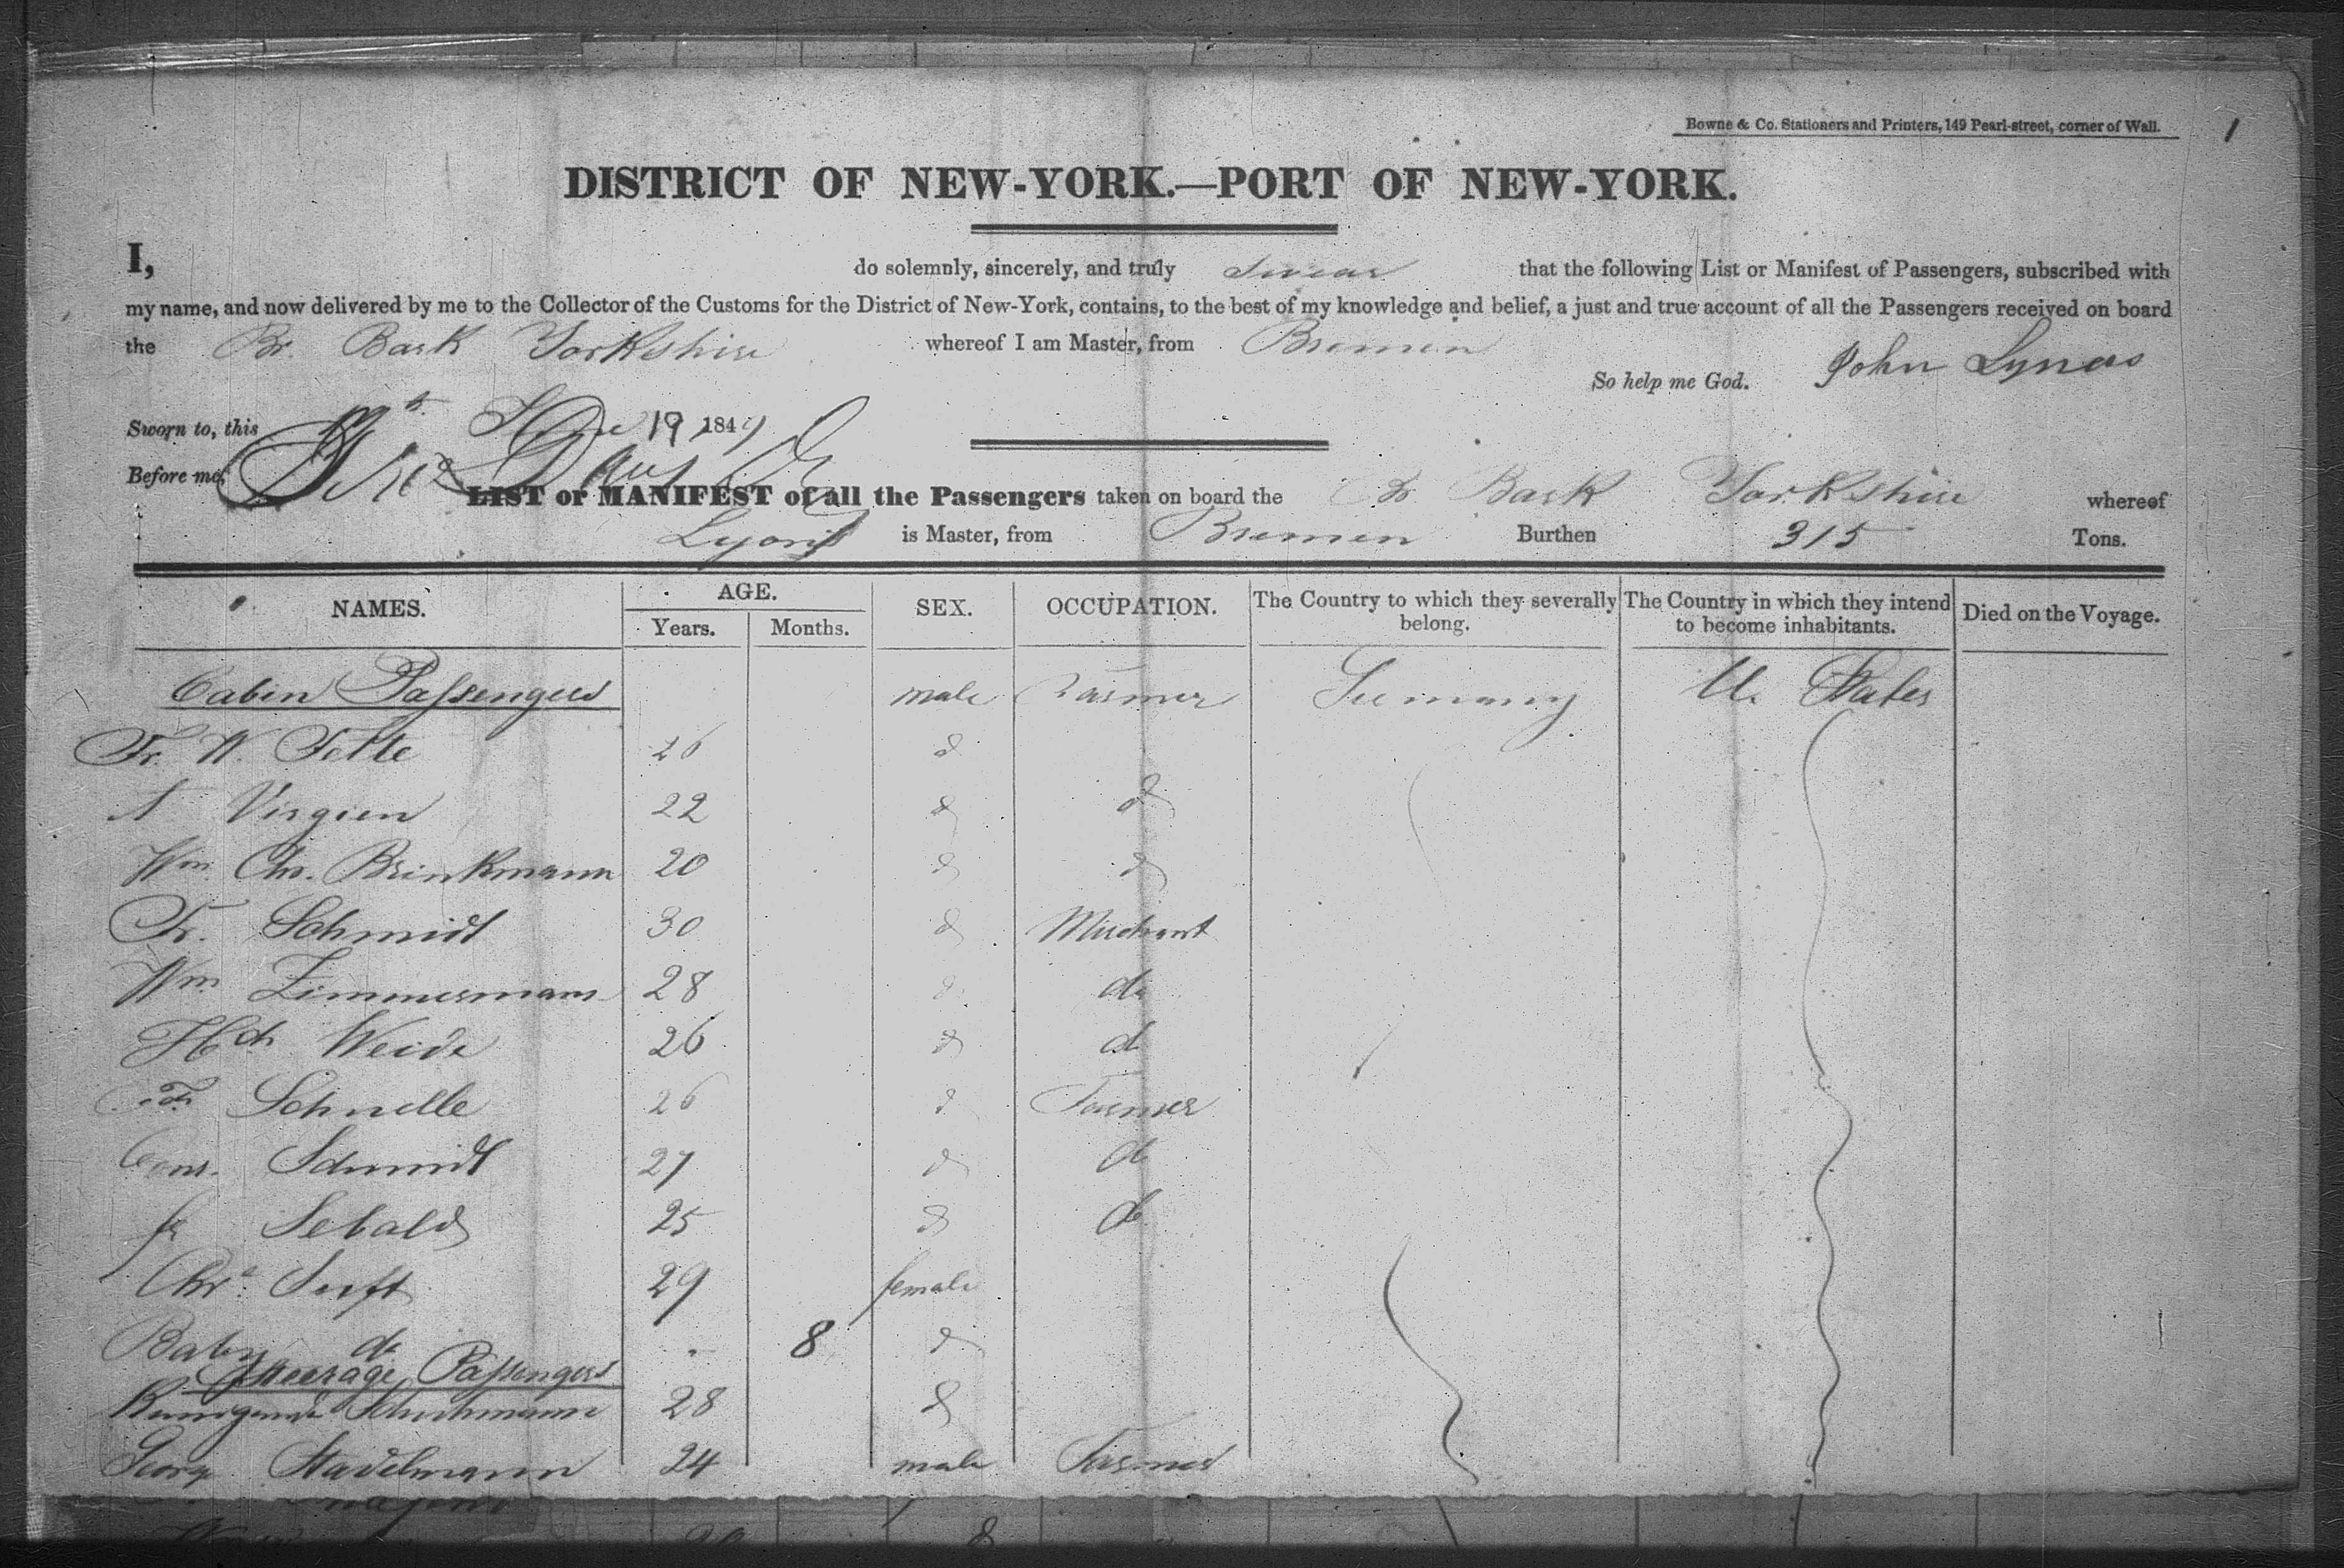 Bowne & Co. Stationers and Printers, 149 Pearl-street, corner of Wall. 1
DISTRICT OF NEW-YORK.—PORT OF NEW-YORK.
I, do solemnly, sincerely, and truly Swear that the following List or Manifest of Passengers, subscribed with
my name, and now delivered by me to the Collector of the Customs for the District of New-York, contains, to the best of my knowledge and belief, a just and true account of all the Passengers received on board
the Br. Bark Yorkshire whereof I am Master, from Bremen
So help me God. John Lynas
Sworn to, this 19 1849
Before me,
LIST or MANIFEST of all the Passengers taken on board the Br Bark Yorkshire whereof
is Master, from Bremen Burthen 315 Tons.
NAMES. AGE. Years. Months. SEX. OCCUPATION. The Country to which they severally belong. The Country in which they intend to become inhabitants. Died on the Voyage.
Cabin Passengers male Farmer Germany U. States
Fr. W. Tette 26 d
A Virgien 22 d d
Wm. Chr. Brinkmann 20 d d
Fr. Schmidt 30 d Merchant
Wm Zimmermann 28 d do
Hch Weide 26 d do
Schnelle 26 d Farmer
Schmidt 27 d do
fr Sebald 25 d do
Chr. Senft 29 female
Baby do 8 d
Steerage Passengers
Kunigunde Schuhmann 28 d
Georg Stadelmann 24 male Farmer